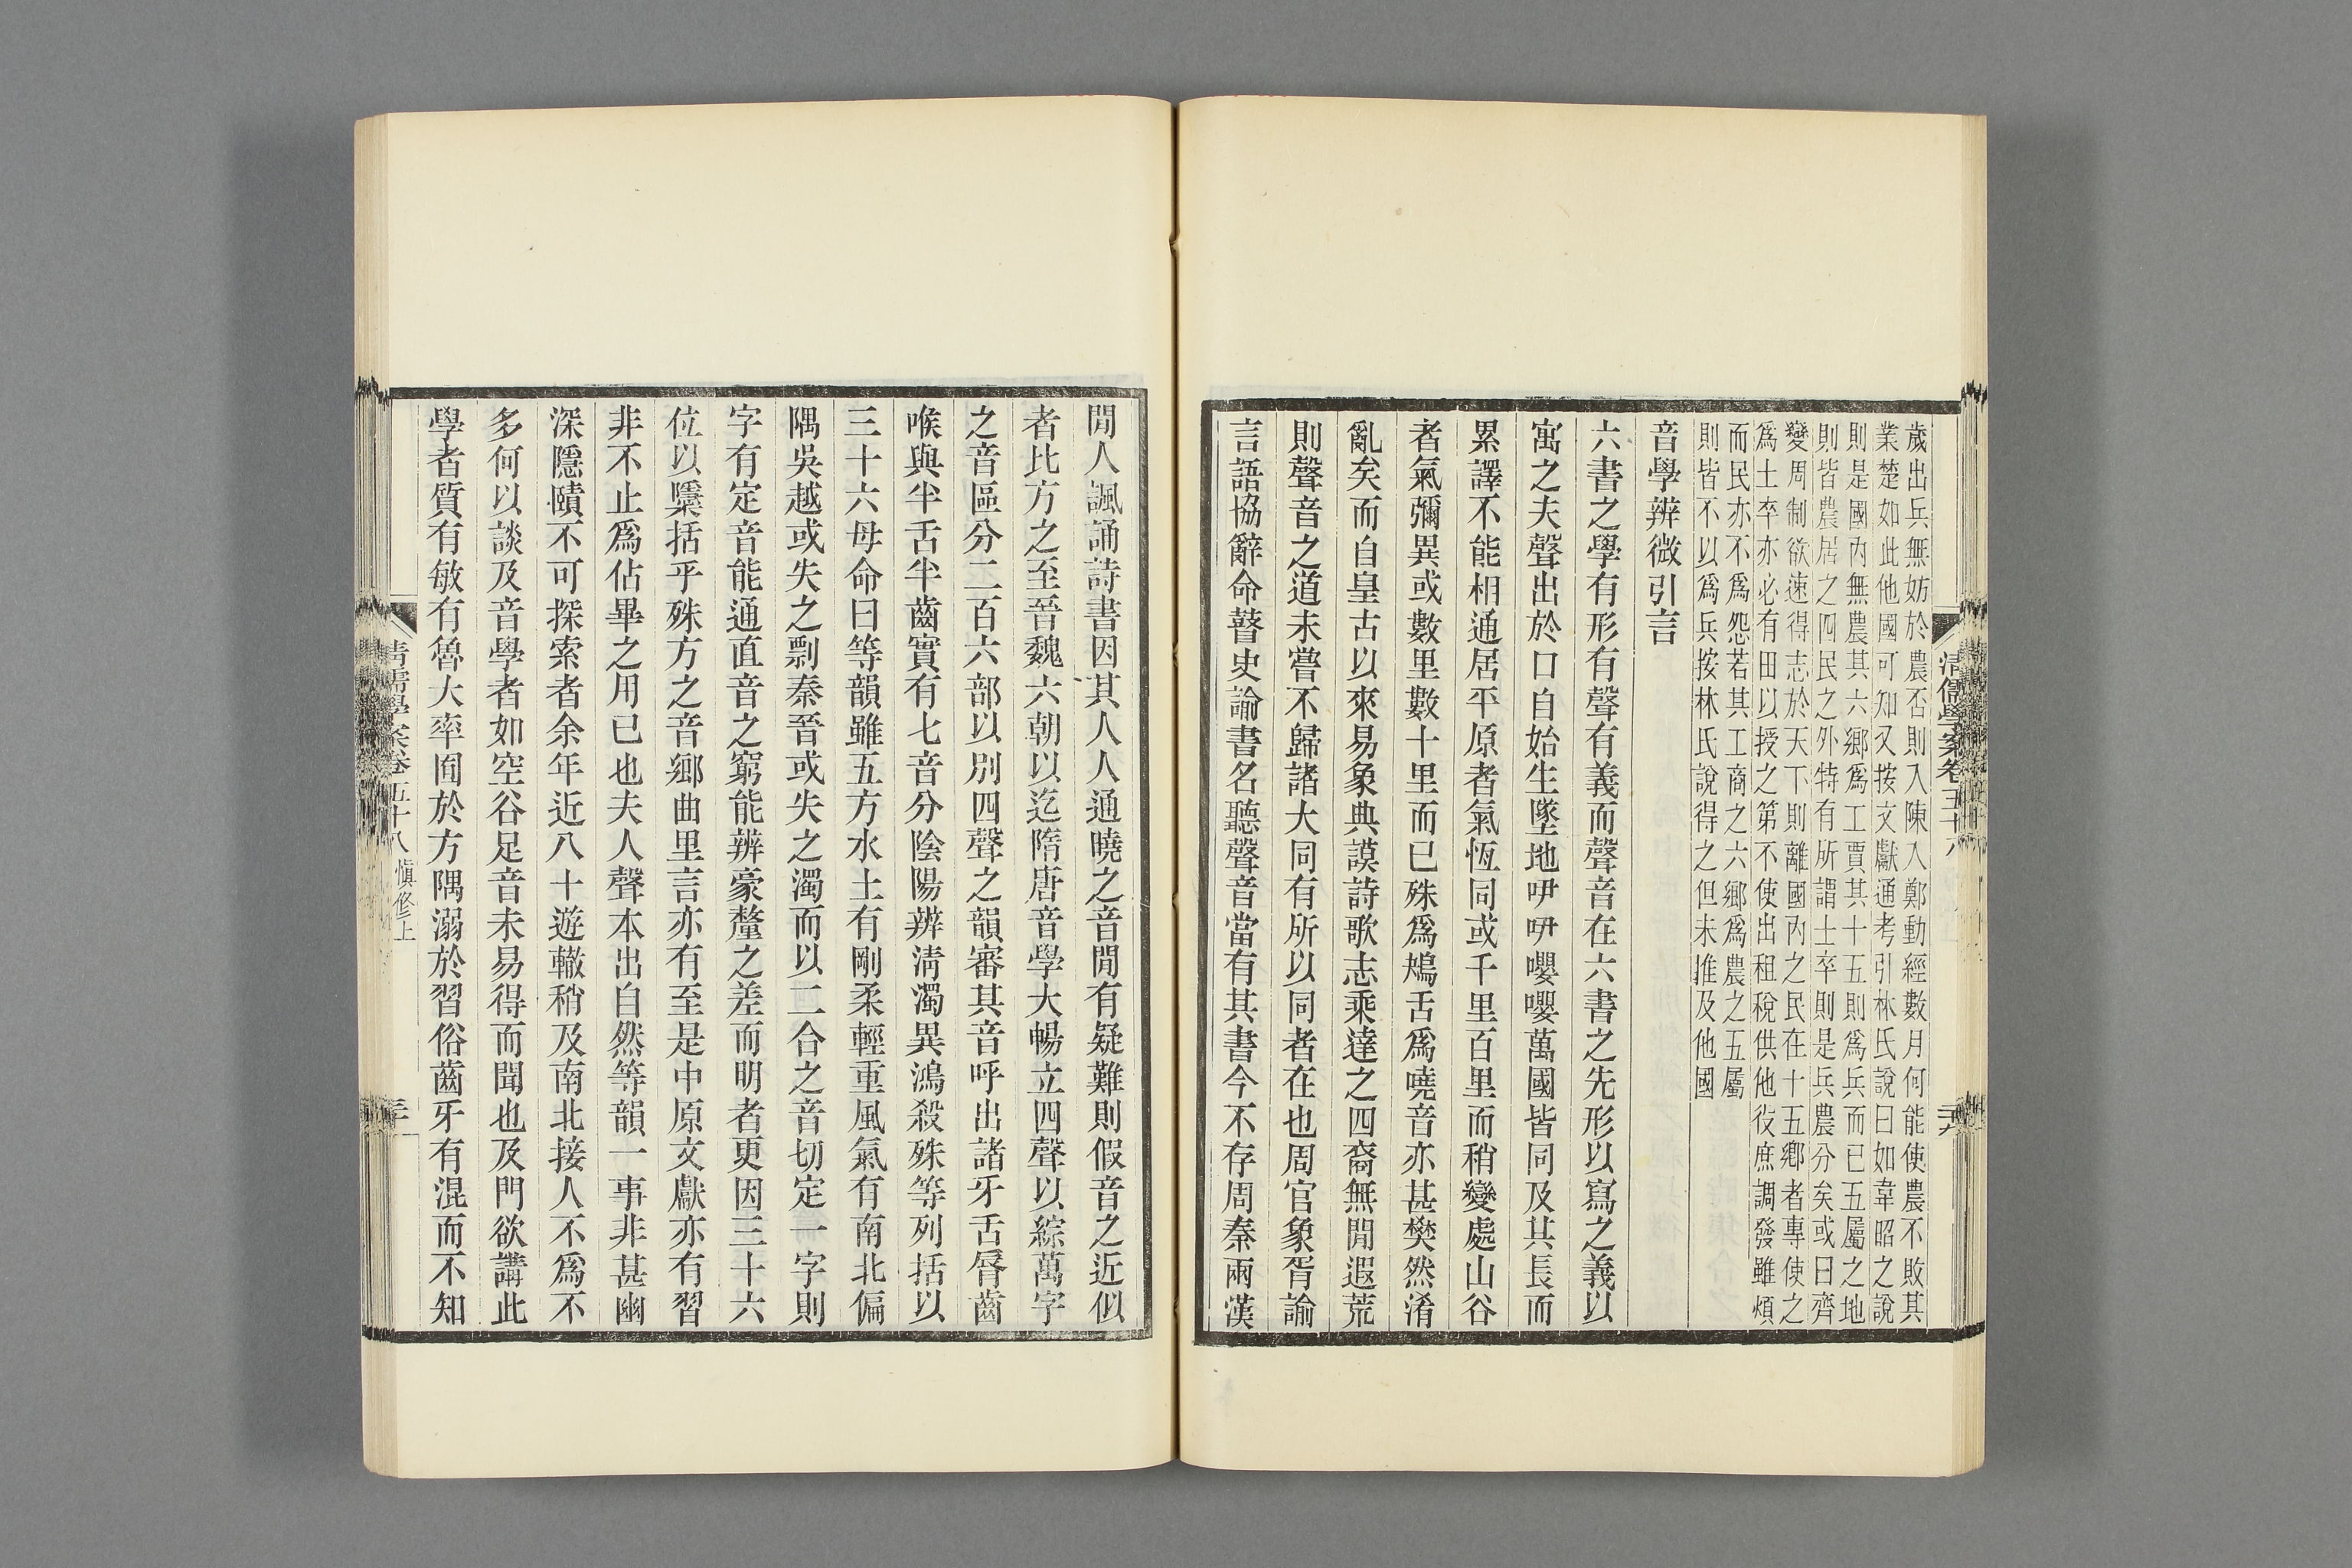 歲出兵無妨於農否則入陳入鄭動經數月何能使農不敗其
業楚如此他國可知又按文獻通考引林氏說曰如韋昭之說
則是國內無農其六鄉爲工賈其十五則爲兵而已五屬之地
則皆農居之四民之外特有所謂士卒則是兵農分矣或曰齊
變周制欲速得志於天下則離國內之民在十五鄉者專使之
爲士卒亦必有田以授之第不使出租稅供他役庶調發雖煩
而民亦不爲怨若其工商之六鄉爲農之五屬
則皆不以爲兵按林氏說得之但未推及他國
音學辨微引言
六書之學有形有聲有義而聲音在六書之先形以寫之義以
寓之夫聲出於口自始生墜地咿呀嚶嚶萬國皆同及其長而
累譯不能相通居平原者氣恆同或千里百里而稍變處山谷
者氣彌異或數里數十里而已殊爲鴂舌爲嘵音亦甚樊然淆
亂矣而自皇古以來易象典謨詩歌志乘達之四裔無閒遐荒
則聲音之道未嘗不歸諸大同有所以同者在也周官象胥諭
言語協辭命瞽史諭書名聽聲音當有其書今不存周秦兩漢
清儒學案卷五十八
閒人諷誦詩書因其人人通曉之音閒有疑難則假音之近似
者比方之至晉魏六朝以迄隋唐音學大暢立四聲以綜萬字
之音區分二百六部以別四聲之韻審其音呼出諸牙舌脣齒
喉與半舌半齒實有七音分陰陽辨淸濁異鴻殺殊等列括以
三十六母命曰等韻雖五方水土有剛柔輕重風氣有南北偏
隅吳越或失之剽秦晉或失之濁而以二合之音切定一字則
字有定音能通直音之窮能辨豪釐之差而明者更因三十六
位以櫽括乎殊方之音鄉曲里言亦有至是中原文獻亦有習
非不止爲佔畢之用已也夫人聲本出自然等韻一事非甚幽
深隱賾不可探索者余年近八十遊轍稍及南北接人不爲不
多何以談及音學者如空谷足音未易得而聞也及門欲講此
學者質有敏有魯大率囿於方隅溺於習俗齒牙有混而不知
清儒學案卷五十八 愼修上